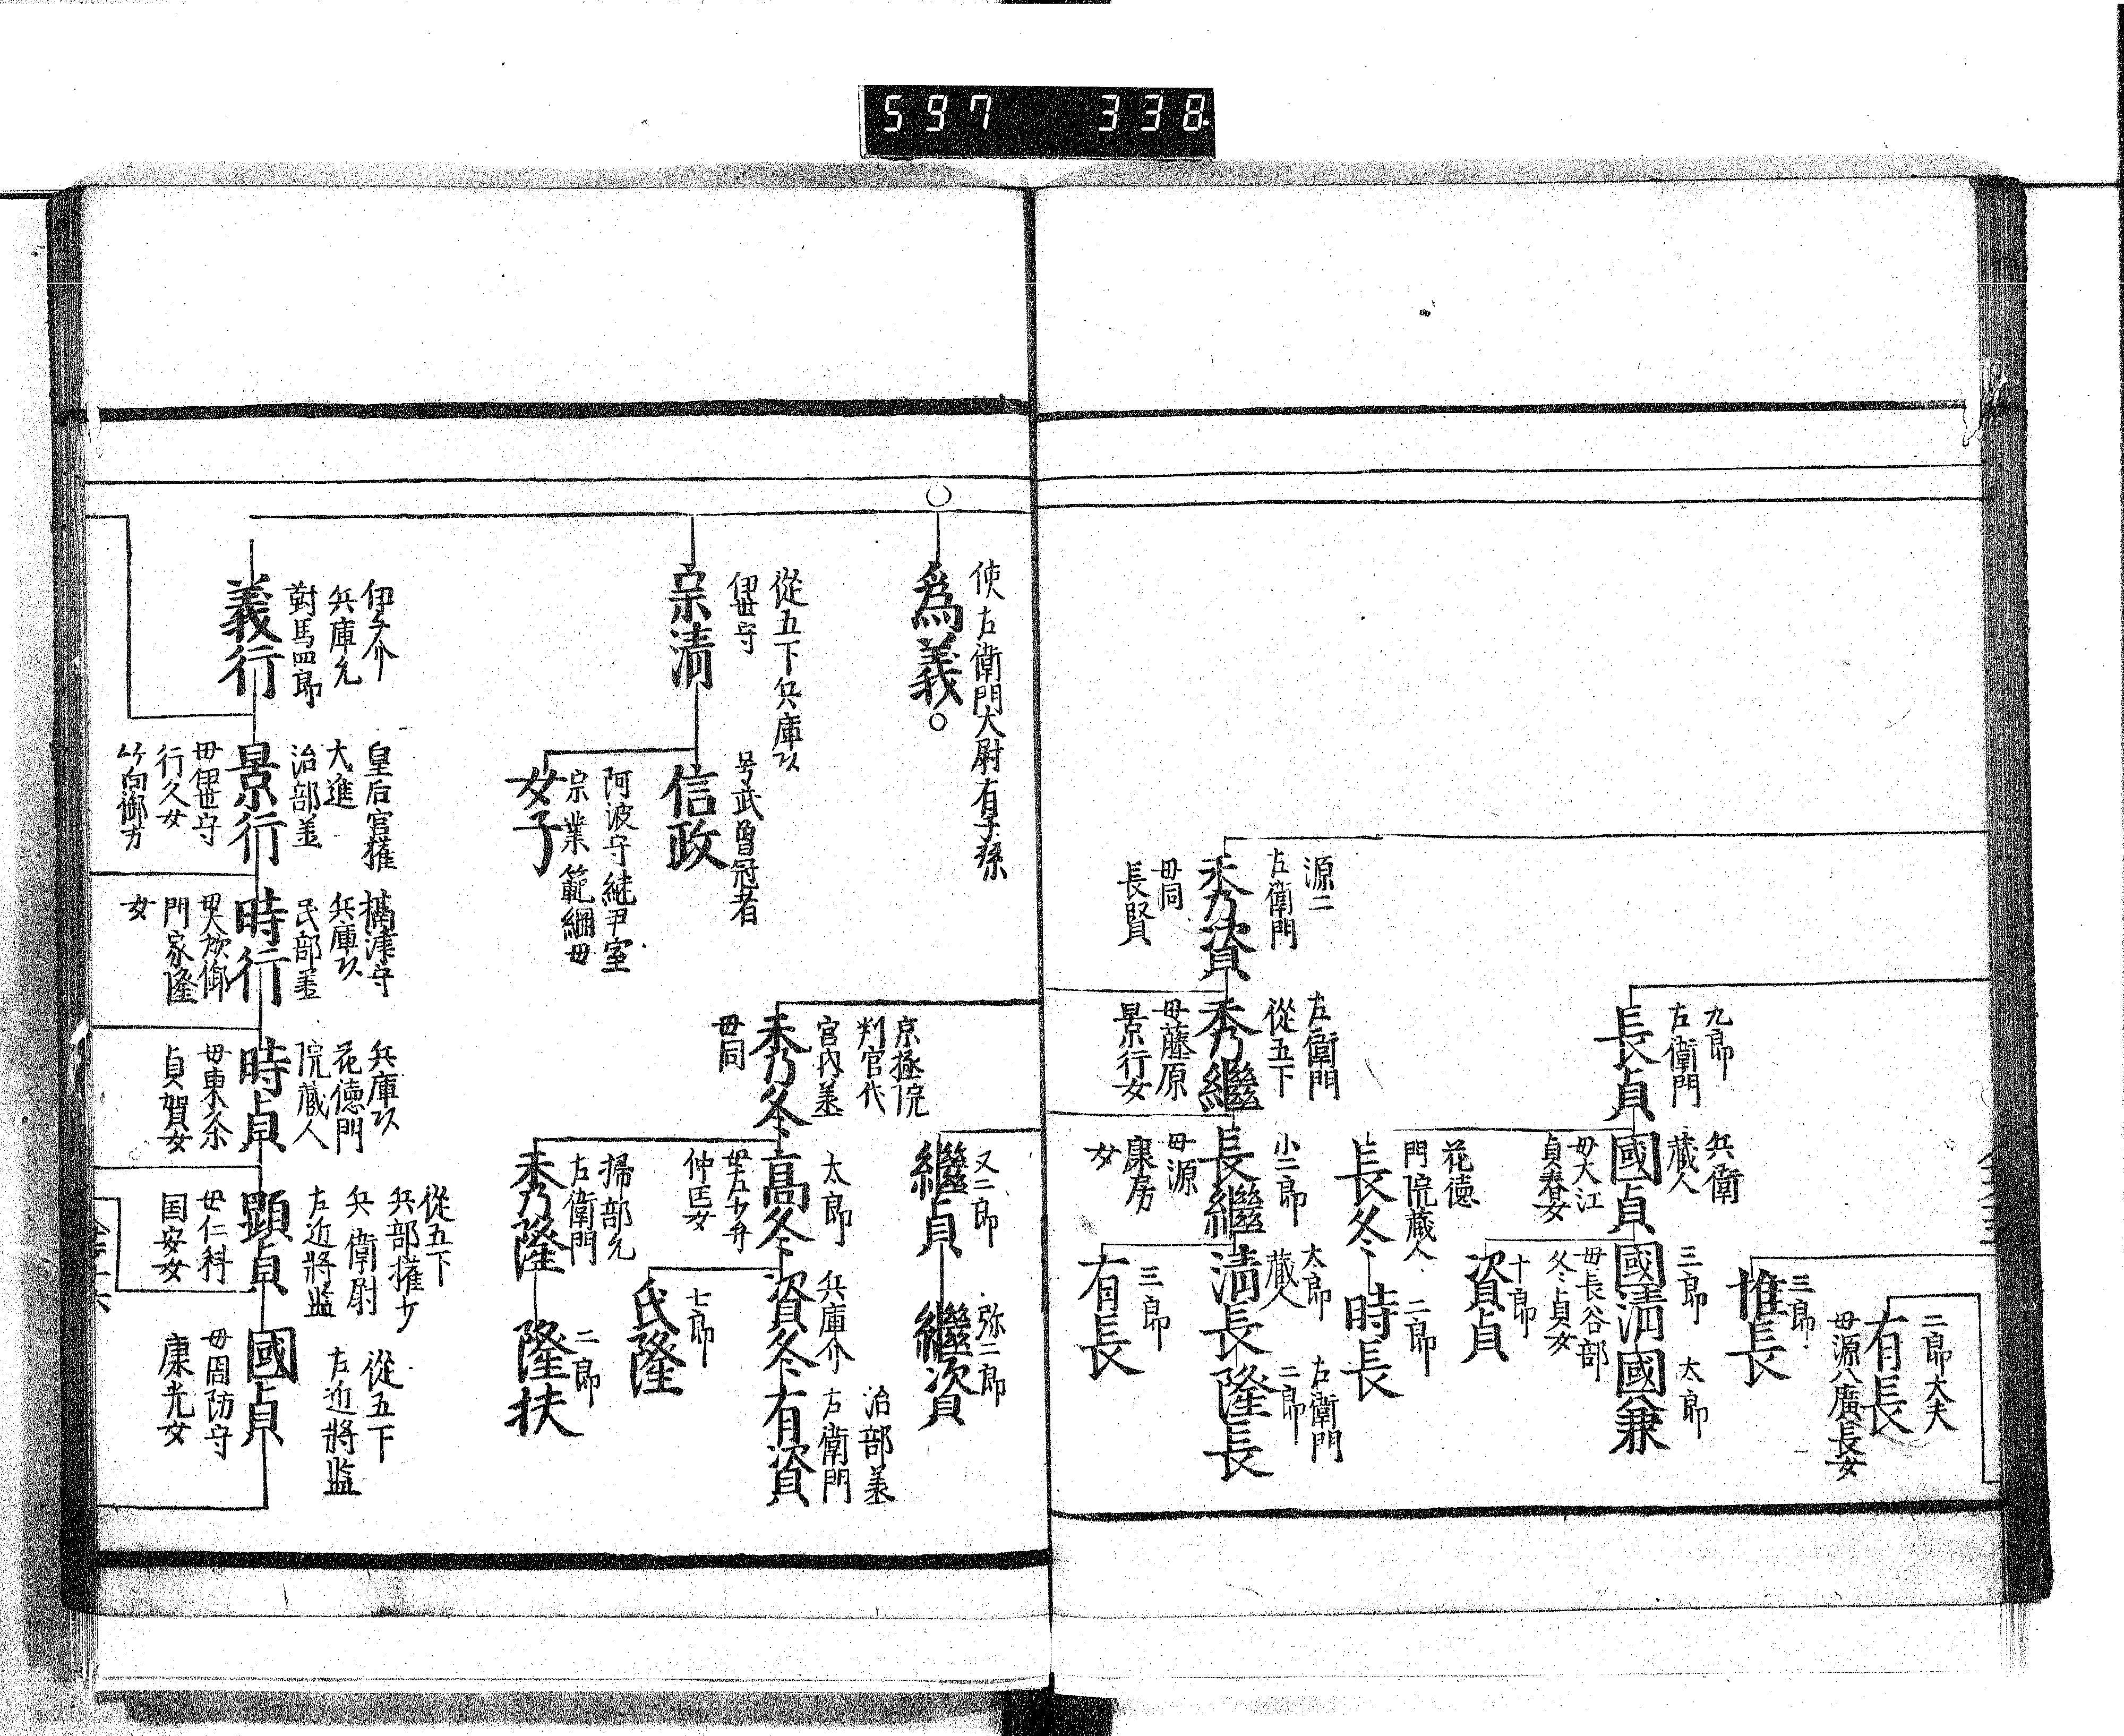 597 338
二郎大夫
有長
母源八廣長女
三郎
惟長
九郎
左衛門
長貞
兵衛
蔵人
國貞
母大江
貞春女
三郎
國清
母長谷部
冬貞女
太郎
國兼
十郎
資貞
花徳
門院蔵人
長冬
二郎
時長
源二
左衛門
秀資
母同
長賢
左衛門
從五下
秀繼
母藤原
景行女
小二郎
長繼
母源
康房
女
太郎
蔵人
清長
左衛門
二郎
隆長
三郎
有長
使左衛門大尉有子孫
為義
從五下兵庫以
伊世守
宗清
号武曽冠者
信政
阿波守継尹室
宗業範綱母
女子
又二郎
繼貞
弥二郎
繼資
京極院
判官代
宮内美
秀冬
母同
太郎
高冬
母五少弁
仲匡女
兵庫介
資冬
治部美
左衛門
有資
七郎
氏隆
掃部允
左衛門
秀隆
二郎
隆扶
伊予介
兵庫允
對馬四郎
義行
皇后宮權
大進
治部美
景行
母伊世守
行久女
竹向御方
摂津守
兵庫以
民部美
時行
母大炊御
門家隆
女
兵庫以
花徳門
院蔵人
時貞
母東条
貞賀女
從五下
兵部權少
兵衛尉
左近將監
顕貞
母仁科
国安女
從五下
左近將監
國貞
母周防守
康光女